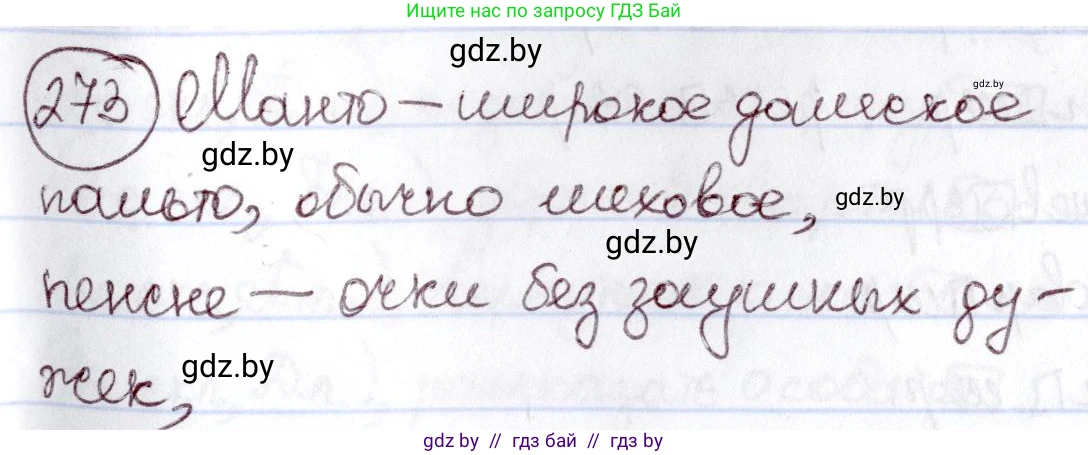 Ищите нас по запросу ГДЗ Бай
gdz.by
273 Манто – широкое дамское
gdz.by
gdz.by
пальто, обычно меховое,
gdz.by
gdz.by
пенсне – очки без заушных ду-
gdz.by
жек,
gdz.by // гдз бай // гдз by